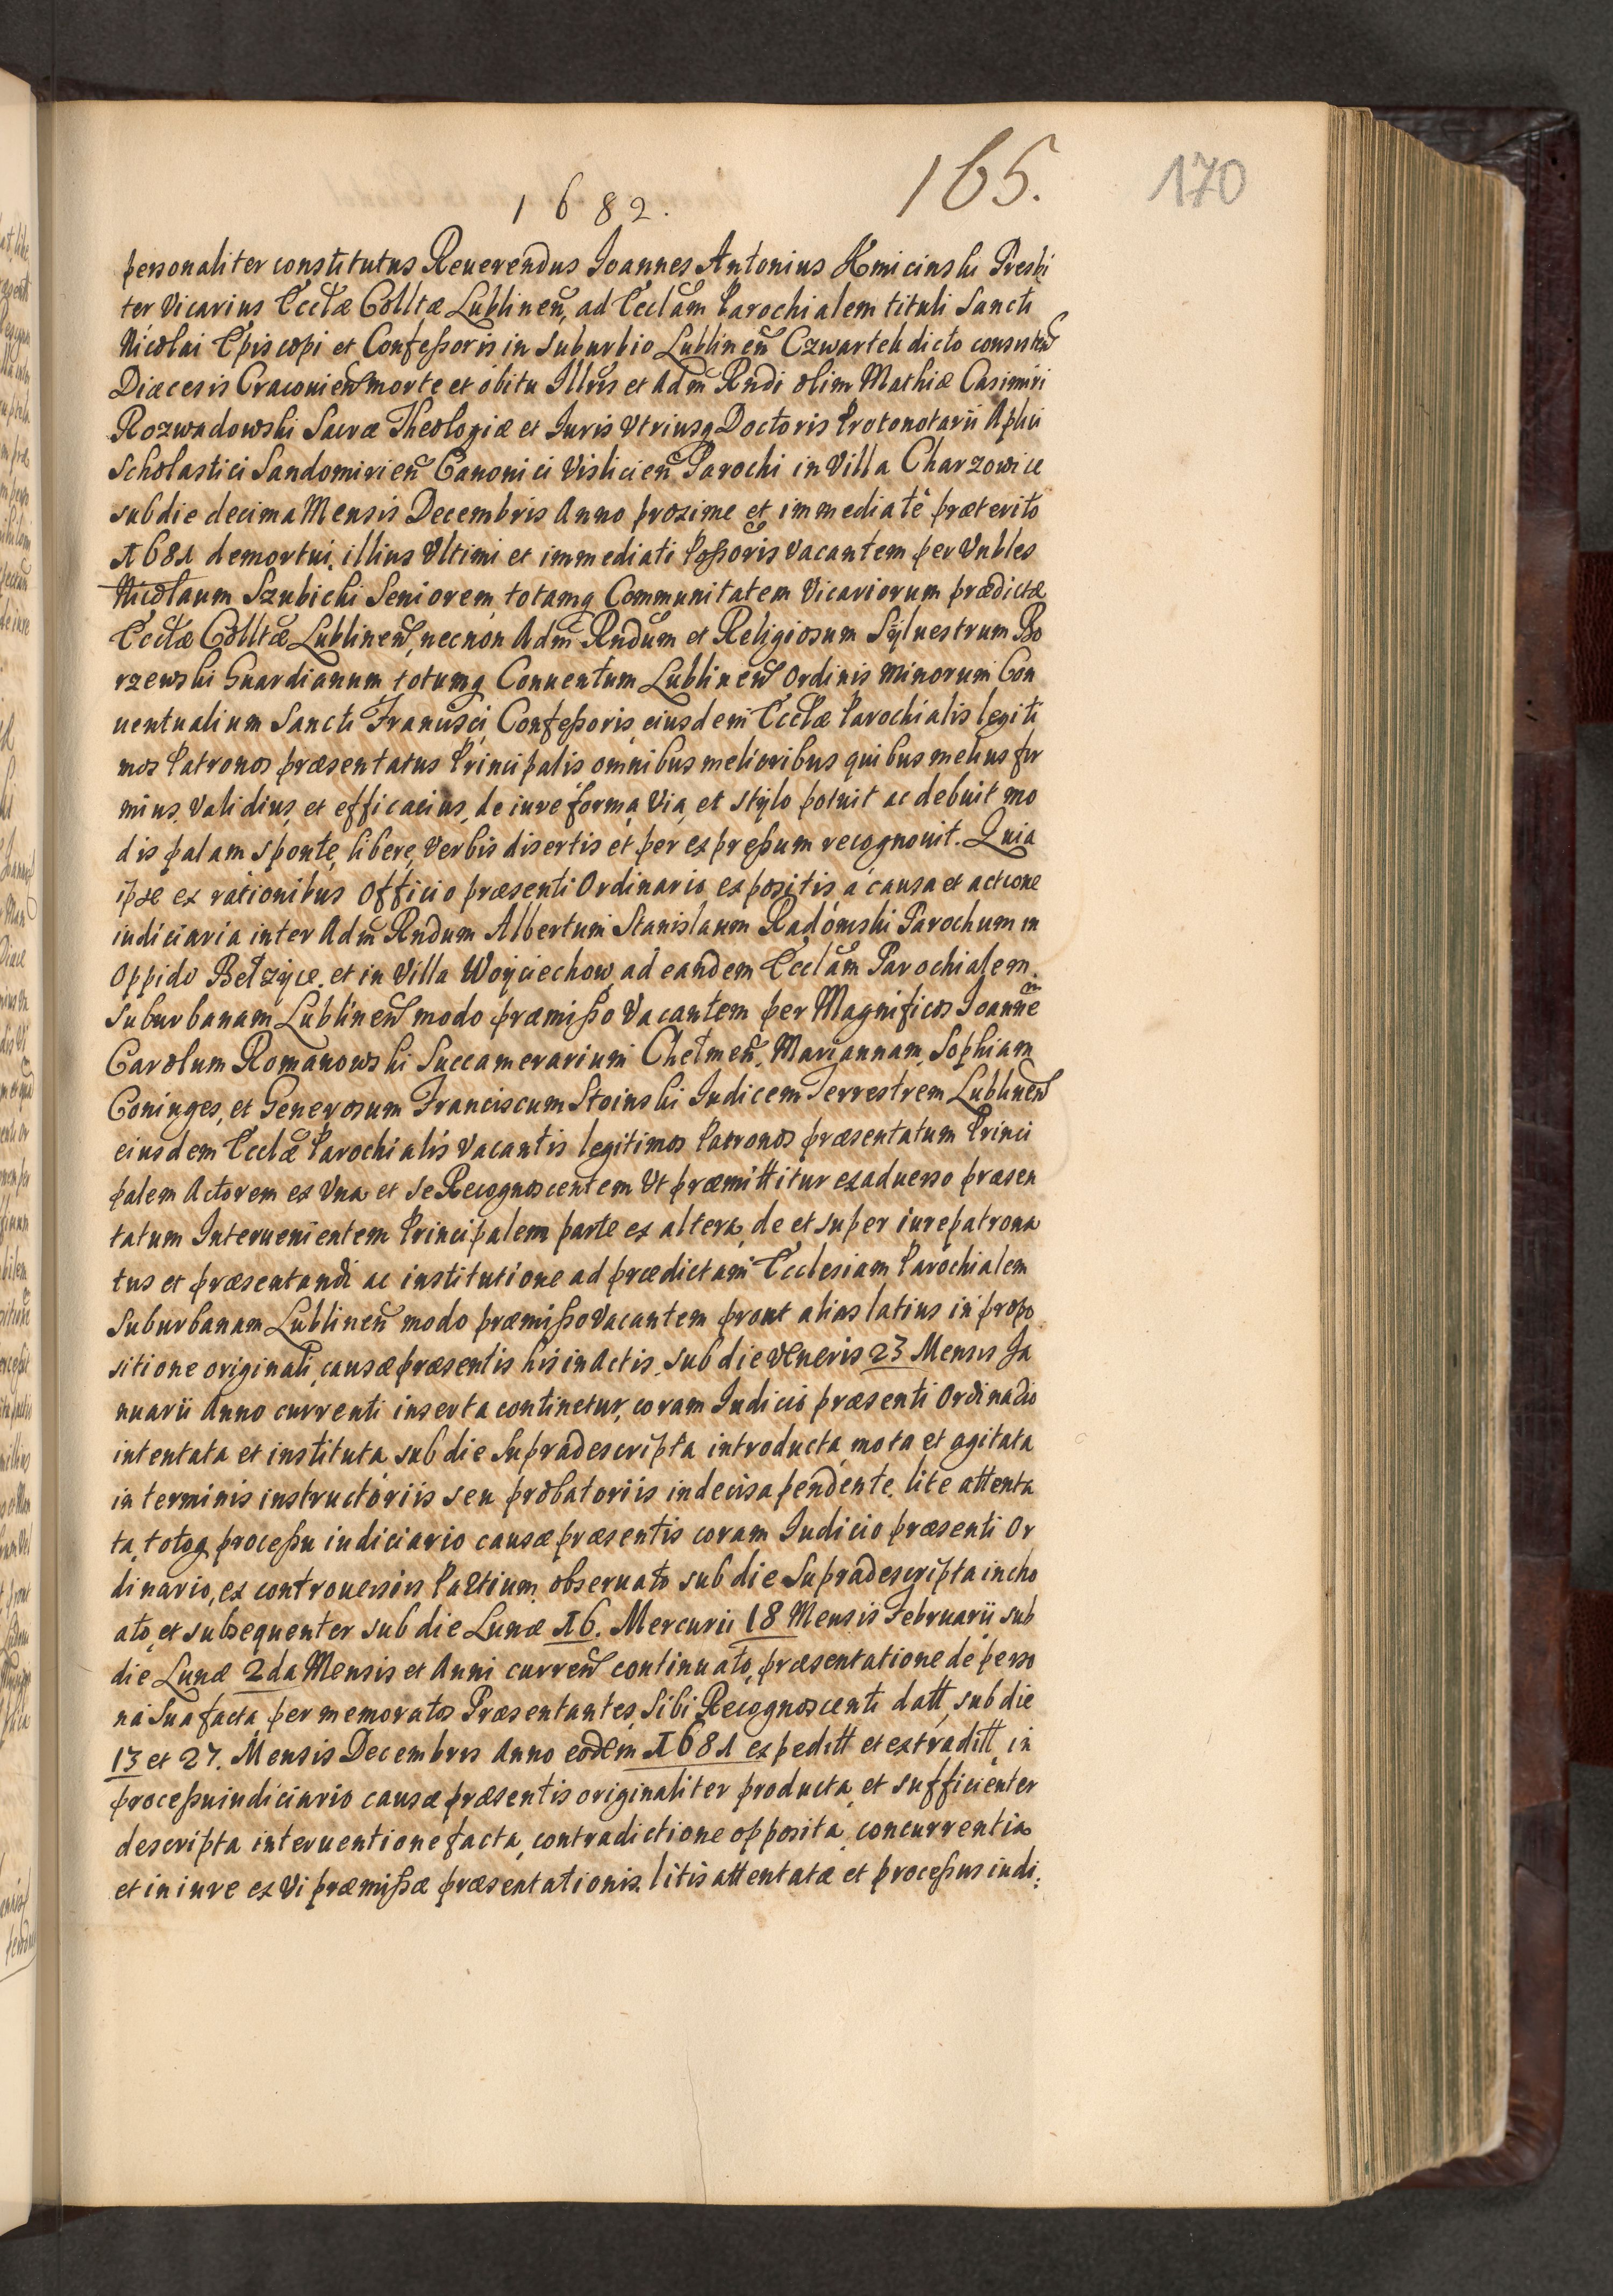 165.
170
1682.
personaliter constitutus Reuerendus Joannes Antonius Kmicinski Presbi
ter Vicarius Eccłæ Collłæ Lublineñ, ad Eccłam Parochialem tituli Sancti
Nicolai Episcopi et Confeßoris in Suburbio Lublineñ Czwartek dicto consisteñ
Diæcesis Cracouieñ morte et obitu Illris et Adm Rndi olim Mathiæ Casimiri
Rozwadowski Sacræ Theologiæ et Iuris Vtriusq Doctoris Protonotarii Aplici
Scholastici Sandomirieñ Canonici Vislicieñ Parochi in Villa Charzowice
sub die decima Mensis Decembris Anno proxime et immediatè præterito
1681 demortui, illius Vltimi et immediati Poßoris Vacantem per Vnbles
Nicolaum Szubicki Seniorem, totamq Communitatem Vicariorum prædictæ
Eccłæ Collłæ Lublineñ, necnon Adm Rndum et Religiosum Sÿluestrum Bo
rzewski Guardianum totumq Conuentum Lublineñ Ordinis Minorum Con
uentualium Sancti Francisci Confeßoris, eiusdem Eccłæ Parochialis legiti
mos Patronos præsentatus Principalis omnibus melioribus quibus melius fir
mius, Validius, et efficacius, de iure forma, Via, et stÿlo potuit ac debuit mo
dis palam sponte, libere, Verbis disertis et per expreßum recognouit. Quia
ipse ex rationibus Officio præsenti Ordinario expositis à causa et actione
iudiciaria inter Adm Rndum Albertum Stanislaum Radomski Parochum in
Oppido Bełzÿce, et in Villa Woÿciechow, ad eandem Eccłam Parochialem
Suburbanam Lublineñ modo præmißo Vacantem per Magnificos Joannem
Carolum Romanowski Succamerarium Chełmeñ, Mariannam, Sophiam
Coniuges, et Generosum Franciscum Stoinski Iudicem Terrestrem Lublineñ
eiusdem Eccłæ Parochialis Vacantis legitimos Patronos præsentatum Princi
palem Actorem ex Vna et se Recognoscentem Vt præmittitur ex aduerso præsen
tatum Interuenientem Principalem parte ex altera, de et super iurepatrona
tus et præsentandi ac institutione ad prædictam Ecclesiam Parochialem
Suburbanam Lublineñ modo præmißo Vacantem prout alias latius in propo
sitione originali causæ præsentis his in Actis, sub die Veneris 23 Mensis Ja
nuarii Anno currenti inserta continetur, coram Iudicio præsenti Ordinario
intentata et instituta, sub die Supradescripta introducta, mota et agitata
in terminis instructoriis seu probatoriis indecisa pendente, lite attenta
ta, totoq proceßu iudiciario causæ præsentis coram Iudicio præsenti Or
dinario, ex controuersiis Partium obseruato sub die Supradescripta incho
ato, et subsequenter sub die Lunæ 16. Mercurii 18 Mensis Februarii sub
die Lunæ 2da Mensis et Anni curreñ continuato, præsentatione de perso
na Sua facta per memoratos Præsentantes, Sibi Recognoscenti datt, sub die
13 et 27. Mensis Decembris Anno eodem 1681 expeditt et extraditt, in
proceßu iudiciario causæ præsentis originaliter producta, et sufficienter
descripta interuentione facta, contradictione opposita, concurrentia
et in iure ex Vi præmißæ præsentationis, litis attentatæ et proceßus iudi: